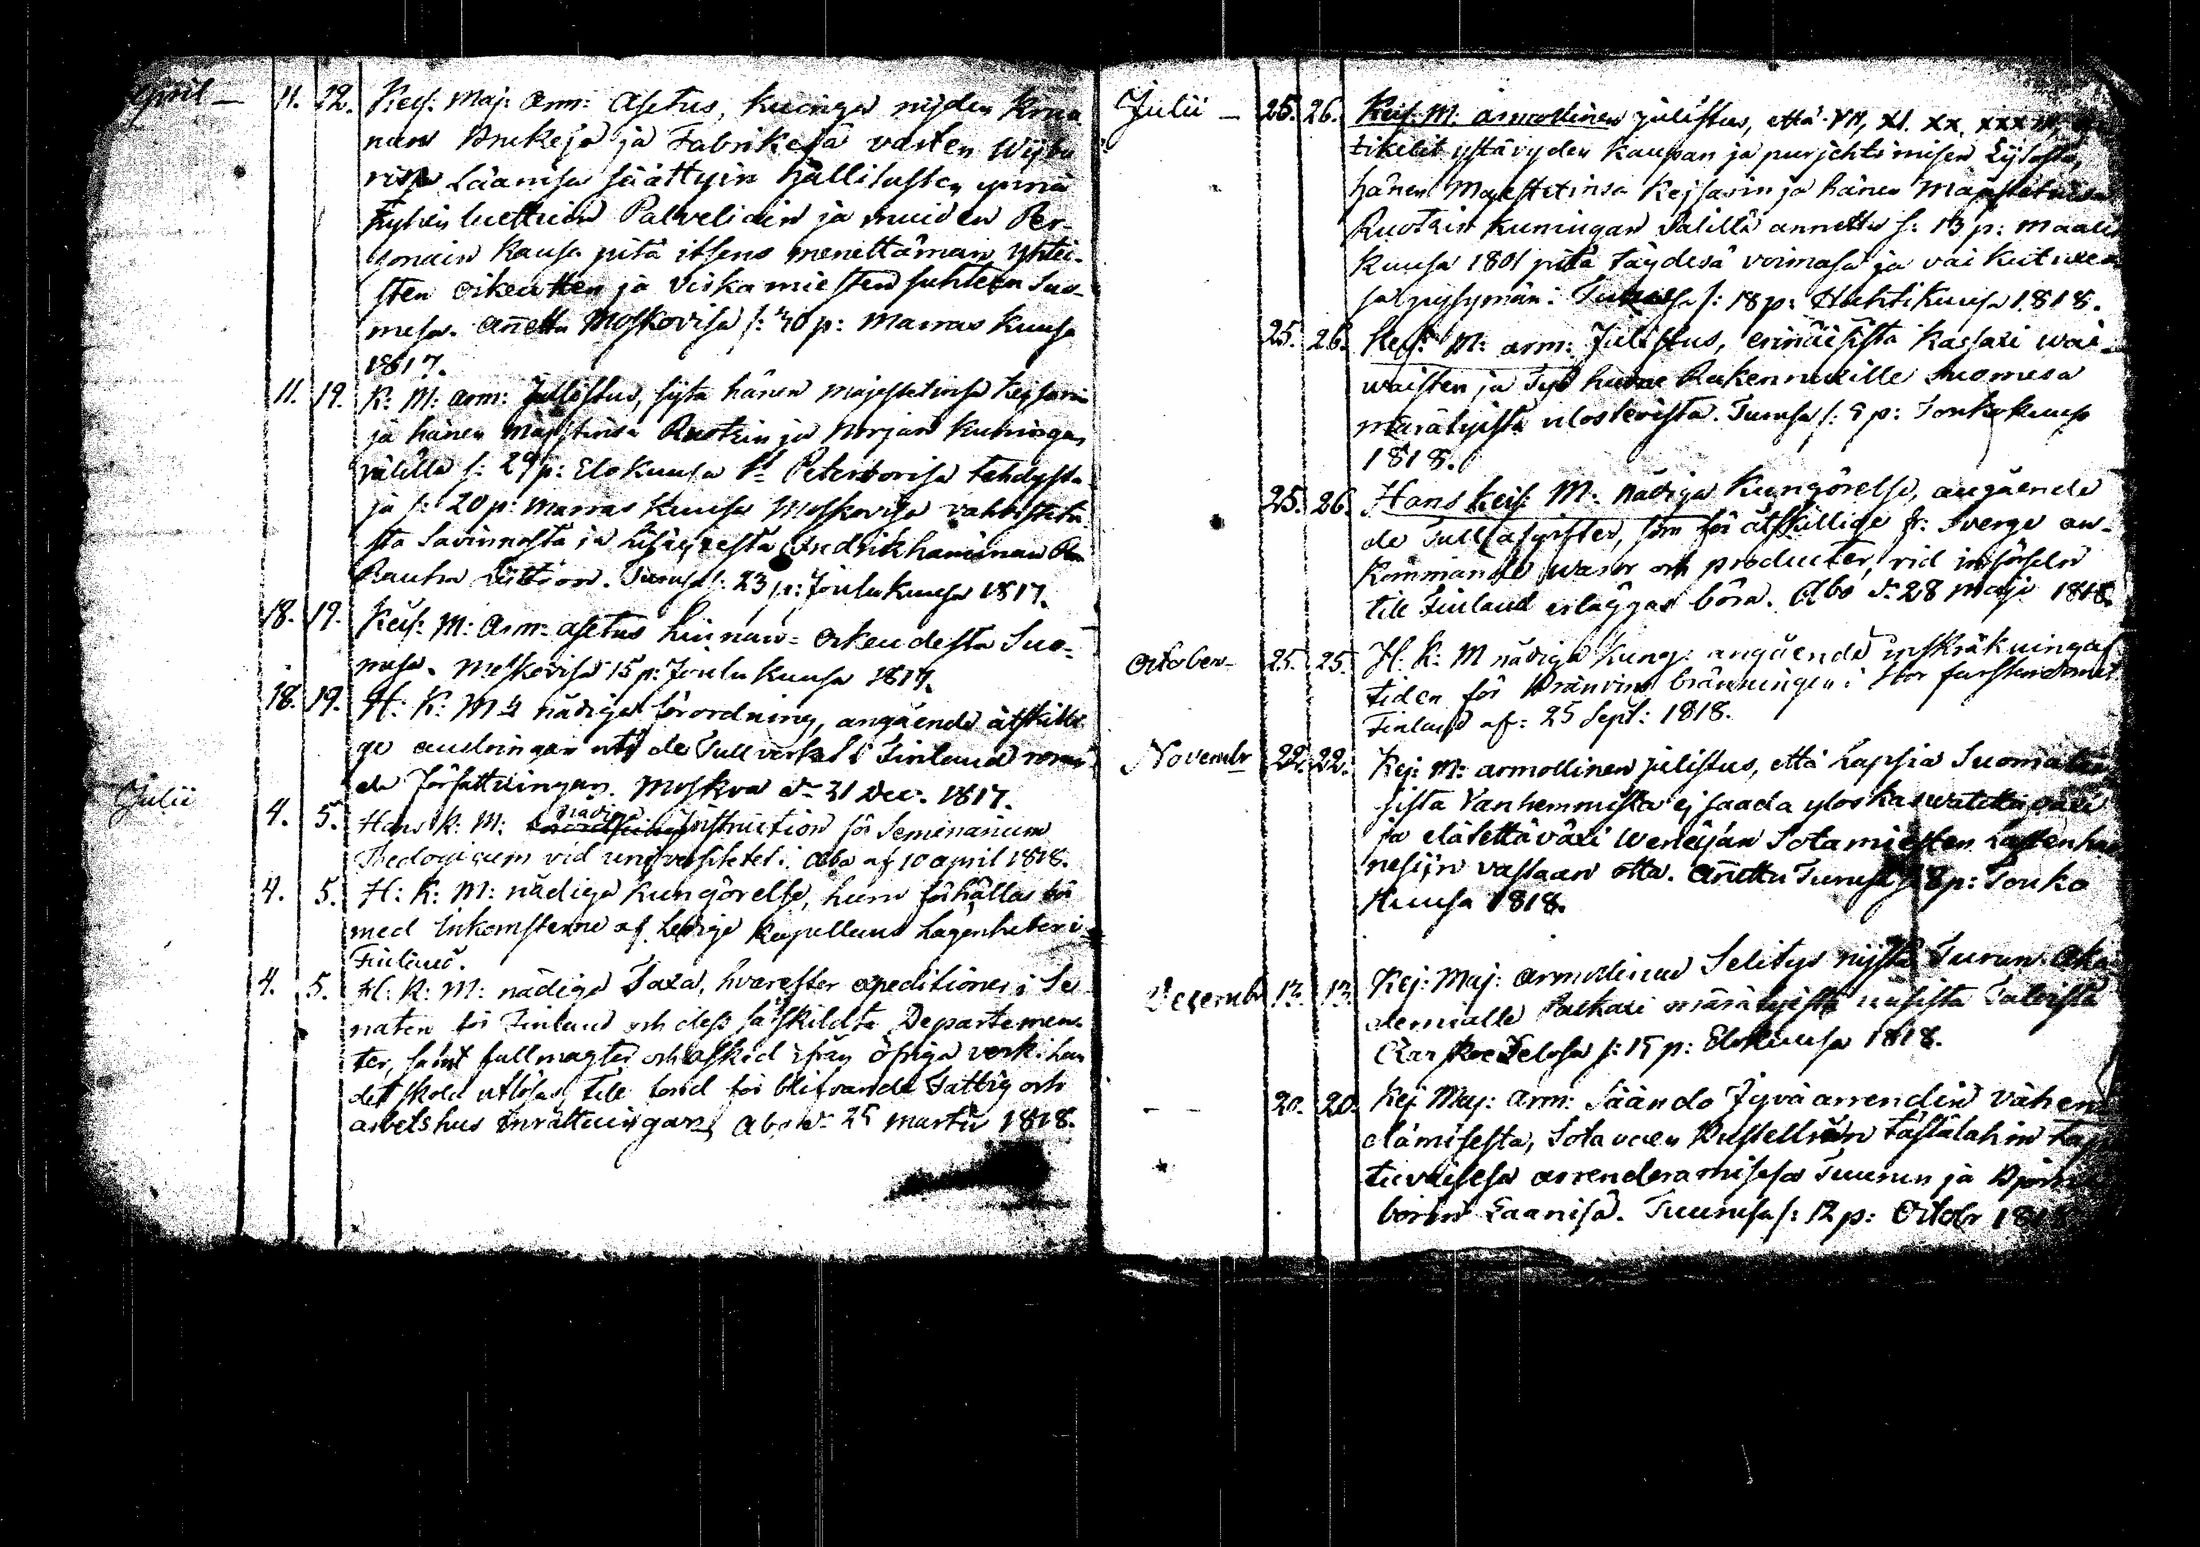 April — 11. 12. Keis. Maj: Arm: Asetus, kuinga nijden Kruu
nun Brukeja ja Fabrikeja vasten Wijbu
risa Läänisä säättyin hallitusten ynnä
hyhin luettuin Palvelioin ja muiden Per-
sonain kansa pitä itsens menettämän yhtei-
sten oikeutten ja Virkamiesten suhteen Suo-
mesa. Annettu Moskovisa s: 30 p: Marras kuusa
1817.
11. 19. K: M: arm: Julistus, sijtä hänen Majestetinsa Keisarin
ja hänen Majestetinsa Ruotzin ja Norjan kuningan
välillä s: 29 p: Elokuusa St Petersborisa tehdystä
ja s: 20 p: Marras kuusa Moskovisa vahvistetu
sta Savinnosta ja lisäyxestä Fredrikhaminan
Rauhan Liittoon. Turusa s: 23 p: Joulukuusa 1817.
18. 19. Keis: M: Arm: asetus Linnan= oikeudesta Suo-
mesa. Moskovisa 15 p: Joulu kuusa 1817.
18. 19. H: K: Mts nådiga förordning, angående åtskilli
ge ändringar uti de Tullverket i Finland röran
de författningar. Moskva d: 31 Dec. 1817.
Julii 4. 5. Hans K: M: nådiga Instruction för Seminarium
Theologicum vid universitetet i Åbo af 10 april 1818.
4. 5. H: K: M: nådiga Kungörelse, huru förhållas bör
med Inkomsterne af ledige Kapellans Lägenheter i
Finland.
4. 5. H: K: M: nådiga Taxa, hvarefter expeditioner i Se
naten för Finland och dess särskildta Departemen
ter, samt fullmagter och afsked ifrån öfriga verk i lan
det skola utlösas, till fond för blifvande Fattig och
arbetshus Inrättningar, Åbo d: 25 martii 1818.
Julii — 25. 26. Keis: M: armollinen julistus, että VII, XI. XX.
tikelit ystävyden kaupan ja purjehtimisen Lijtosta,
hänen Majestetinsa Kejsarin ja hänen Majestetinsa
Ruotzin kuningan välillä annettu s: 13 p: Maalis
kuusa 1801 pitä täydesä voimasa ja vaikutuxes
sa pysymän: Turusa s: 18 p: Huhtikuusa 1818.
25. 26. Keis: M: arm: Julistus, erinäisistä kassaxi wai-
waisten ja Työ huone Rakennuxille Suomesa
määrätyistä ulosteoista. Turusa s: 5 p: Toukokuusa
1818.
25. 26. Hans Keis: M: Nådiga Kungörelse, angående
de Tull afgifter, som för åtskillige fr: Sverge an-
kommande waror och producter, vid införseln
till Finland erläggas böra. Åbo d: 28 Maji 1818.
October — 25. 25. H: K: M nådiga kung: angående inskränkning af
tiden för Bränvins bränningen i Stor furstendömet
Finland af: 25 Sept: 1818.
Novembr 22. 22. Kej: M: armollinen julistus, että Lapsia Suomalai
sista Vanhemmista ej saada yloskaswatettavaxi
ja elätettäväxi Wenäjän Sotamiesten Lastenhuo
nesijn vastaan otta. Annettu Turusa s: 8 p: Touko
kuusa 1818.
Decemb 13. 13. Kej: Maj: armollinen Selitys nijstä Turun Aka
demialle Palkaxi määrätyistä uusista Taloista
Czarskoe Zelosa s: 15 p: Elokuusa 1818.
— — 20. 20. Kej Maj: arm: Säändö Jyvä arrendin vähen
dämisestä, Sotaväen Bustellien tästälähin tap
tuvaisesa arrenderamisesa Turun ja Björne
borin Läänisä. Turusa s: 12 p: Octobr 1818